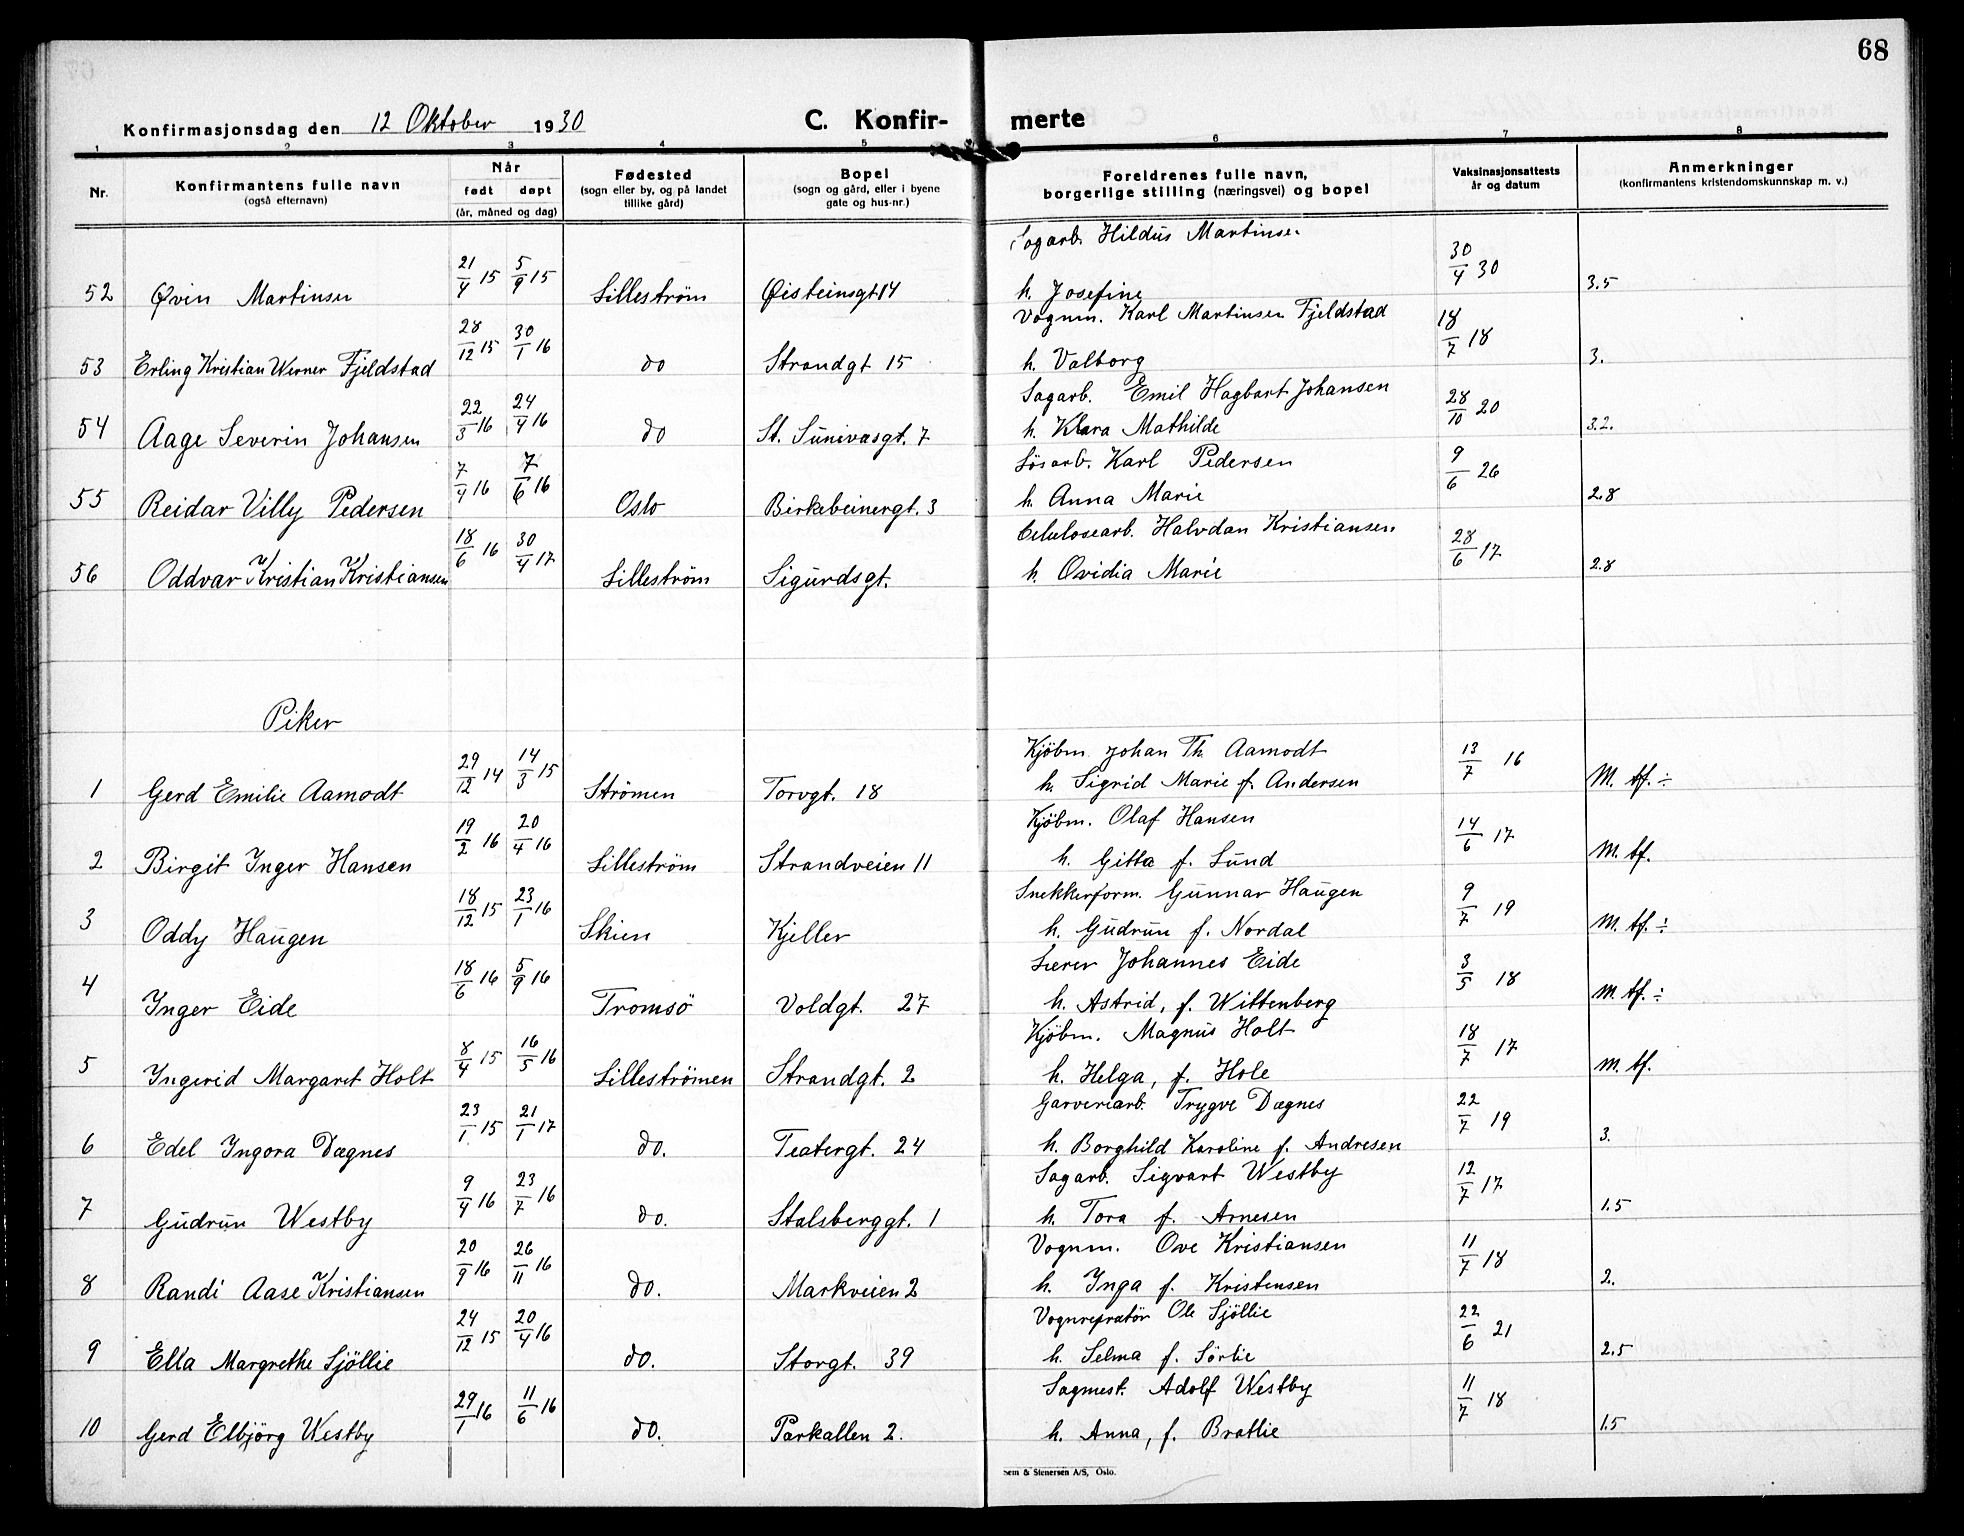 68
Konfirmasjonsdag den 12 Oktober 1930 C. Konfir- merte
1 2 3 4 5 6 7 8
Nr. Konfirmantens fulle navn (også efternavn) Når født døpt (år, måned og dag) Fødested (sogn eller by, og på landet tillike gård) Bopel (sogn og gård, eller i byene gate og hus-nr.) Foreldrenes fulle navn, borgerlige stilling (næringsvei) og bopel Vaksinasjonsattests år og datum Anmerkninger (konfirmantens kristendomskunnskap m. v.)
Sagarb. Hildus Martinsen
52 Øvin Martinsen 21/4 15 5/9 15 Lilleström Øisteinsgt 14 h. Josefine 30/4 30 3.5
Vognm. Karl Martinsen Fjeldstad
53 Erling Kristian Werner Fjeldstad 28/12 15 30/1 16 do Strandgt 15 h. Valborg 18/7 18 3.
Sagarb. Emil Hagbart Johansen
54 Aage Severin Johansen 22/3 16 24/4 16 do St. Sunivasgt. 7 h. Klara Mathilde 28/10 20 3.2.
Løsarb. Karl Pedersen
55 Reidar Villy Pedersen 7/4 16 7/6 16 Oslo Birkebeinergt. 3 h. Anna Marie 9/6 26 2.8
Celulosearb. Halvdan Kristiansen
56 Oddvar Kristian Kristiansen 18/6 16 30/4 17 Lilleström Sigurdsgt. h. Ovidia Marie 28/6 17 2.8
Piker
Kjöbm. Johan Th. Aamodt
1 Gerd Emilie Aamodt 29/12 14 14/3 15 Strömen Torvgt. 18 h. Sigrid Marie f. Andersen 13/7 16 M. tf. ÷
Kjöbm. Olaf Hansen
2 Birgit Inger Hansen 19/2 16 20/4 16 Lilleström Strandveien 11 h. Gitta f. Lund 14/6 17 M. tf.
Snekkerform. Gunnar Haugen
3 Oddy Haugen 18/12 15 23/1 16 Skien Kjeller h. Gudrun f. Nordal 9/7 19 M. tf. ÷
Lærer Johannes Eide
4 Inger Eide 18/6 16 5/9 16 Tromsö Voldgt. 27 h. Astrid, f. Wittenberg 3/5 18 M. tf. ÷
Kjöbm. Magnus Holt
5 Ingerid Margaret Holt 8/4 15 16/5 16 Lilleströmen Strandgt. 2 h. Helga, f. Hole 18/7 17 M. tf.
Garveriarb. Trygve Dægnes
6 Edel Ingora Dægnes 23/1 15 21/1 17 do. Teatergt. 24 h. Borghild Karoline f. Andresen 22/7 19 3.
Sagarb. Sigvart Westby
7 Gudrun Westby 9/4 16 23/7 16 do. Stalsberggt. 1 h. Tora f. Arnesen 12/7 17 1.5
Vognm. Ove Kristiansen
8 Randi Aase Kristiansen 20/9 16 26/11 16 do. Markveien 2 h. Inga f. Kristensen 11/7 18 2.
Vognrepratör Ole Sjöllie
9 Ella Margrethe Sjöllie 24/12 15 20/4 16 do. Storgt. 39 h. Selma f. Sörlie 22/6 21 2.5
Sagmest. Adolf Westby
10 Gerd Elbjörg Westby 29/1 16 11/6 16 do. Parkallen 2. h. Anna, f. Bratlie 11/7 18 1.5
Sem & Stenersen A/S, Oslo.